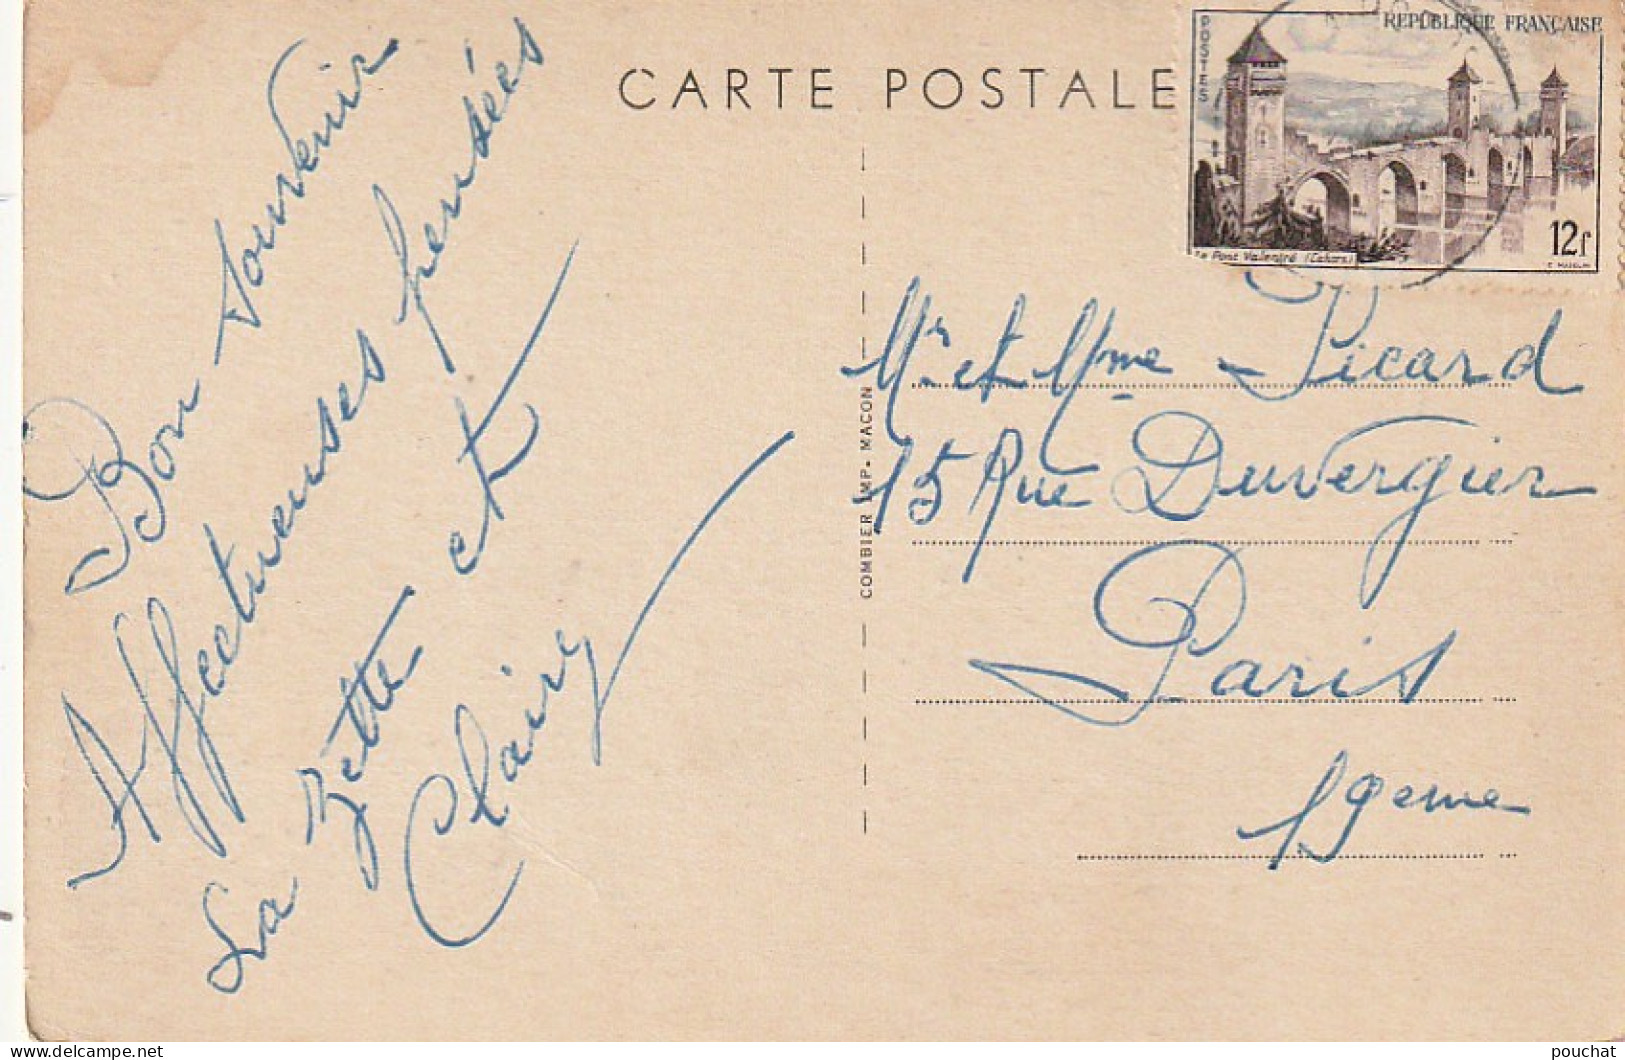 CARTE POSTALE
POSTES
REPUBLIQUE FRANÇAISE
12f
Le Pont Valentré (Cahors)
Bon souvenir
Affectueuses pensées
La zette et
Clairy
COMBIER IMP. MACON
Mr et Mme Picard
15 Rue Duvergier
Paris
19eme
www.delcampe.net
pouchat